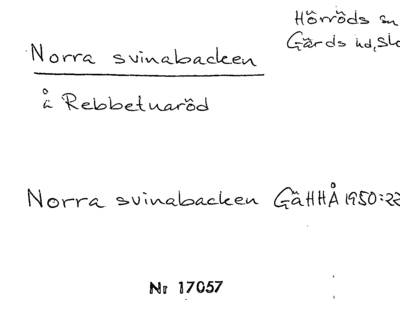 Hörröds sn
Norra svinabacken
Gärds hd, Sk
å Rebbetuaröd
Norra svinabacken GäHHÅ 1950:22
Nr 17057